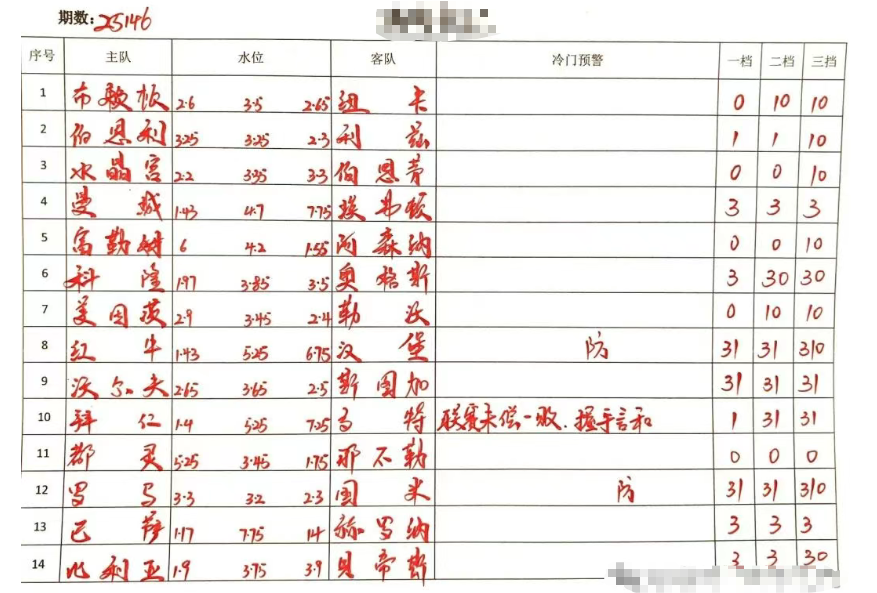 期数:25146
序号 主队 水位 客队 冷门预警 一档 二档 三挡
1 布赖顿 2.6 3.5 2.65 纽卡 0 10 10
2 伯恩利 3.25 3.25 2.3 利兹 1 1 10
3 水晶宫 2.2 3.35 3.3 伯恩茅 0 0 10
4 曼城 1.43 4.7 7.75 埃弗顿 3 3 3
5 富勒姆 6 4.2 1.55 阿森纳 0 0 10
6 科隆 1.97 3.85 3.5 奥格斯 3 30 30
7 美因茨 2.9 3.45 2.4 勒沃 0 10 10
8 红牛 1.43 5.25 6.75 汉堡 防 31 31 310
9 沃尔夫 2.65 3.65 2.5 斯图加 31 31 31
10 拜仁 1.4 5.25 7.25 多特 联赛未尝一败.握手言和 1 31 31
11 都灵 5.25 3.45 1.75 那不勒 0 0 0
12 罗马 3.3 3.2 2.3 国米 防 31 31 310
13 巴萨 1.17 7.75 14 赫罗纳 3 3 3
14 比利亚 1.9 3.75 3.9 贝帝斯 3 3 30